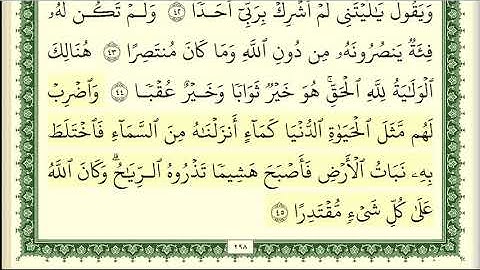 وَيَقُولُ يَٰلَيْتَنِى لَمْ أُشْرِكْ بِرَبِّىٓ أَحَدًا ﴿٤٢﴾ وَلَمْ تَكُن لَّهُۥ
فِئَةٌ يَنصُرُونَهُۥ مِن دُونِ ٱللَّهِ وَمَا كَانَ مُنتَصِرًا ﴿٤٣﴾ هُنَالِكَ
ٱلْوَلَٰيَةُ لِلَّهِ ٱلْحَقِّ ۚ هُوَ خَيْرٌ ثَوَابًا وَخَيْرٌ عُقْبًا ﴿٤٤﴾ وَٱضْرِبْ
لَهُم مَّثَلَ ٱلْحَيَوٰةِ ٱلدُّنْيَا كَمَآءٍ أَنزَلْنَٰهُ مِنَ ٱلسَّمَآءِ فَٱخْتَلَطَ
بِهِۦ نَبَاتُ ٱلْأَرْضِ فَأَصْبَحَ هَشِيمًا تَذْرُوهُ ٱلرِّيَٰحُ ۗ وَكَانَ ٱللَّهُ
عَلَىٰ كُلِّ شَىْءٍ مُّقْتَدِرًا ﴿٤٥﴾
٢٩٨